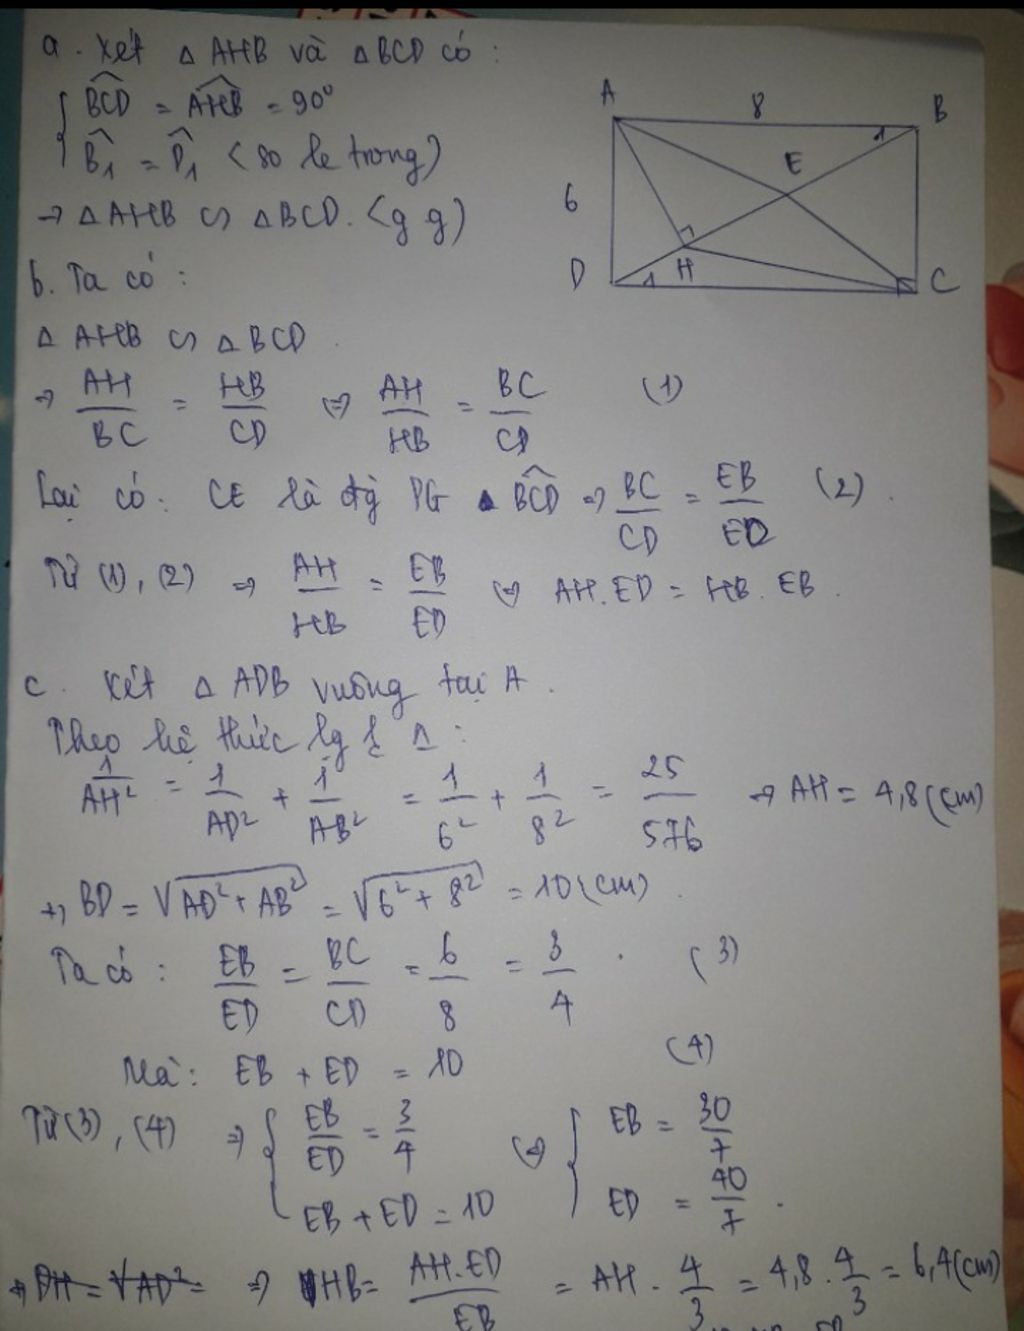 a. Xét △ AHB và △ BCD có :
{ BCD̂ = AHB̂ = 90°
B̂₁ = D̂₁ (so le trong)
→ △ AHB ∽ △ BCD. (g g)
A 8 B
1
E
6
D 1 H C
b. Ta có :
△ AHB ∽ △ BCD
⇒ AH/BC = HB/CD ⇔ AH/HB = BC/CD (1)
Lại có : CE là đg PG BCD̂ ⇒ BC/CD = EB/ED (2).
Từ (1), (2) ⇒ AH/HB = EB/ED ⇔ AH.ED = HB. EB.
c. Xét △ ADB vuông tại A.
Theo hệ thức lg △ :
1/AH² = 1/AD² + 1/AB² = 1/6² + 1/8² = 25/576 ⇒ AH = 4,8 (cm)
+, BD = √(AD² + AB²) = √(6² + 8²) = 10 (cm).
Ta có : EB/ED = BC/CD = 6/8 = 3/4. (3)
Mà : EB + ED = 10 (4)
Từ (3), (4) ⇒ { EB/ED = 3/4
EB + ED = 10
⇔ { EB = 30/7
ED = 40/7.
DH = √AD² = ⇒ HB = AH.ED/EB = AH . 4/3 = 4,8 . 4/3 = 6,4 (cm)